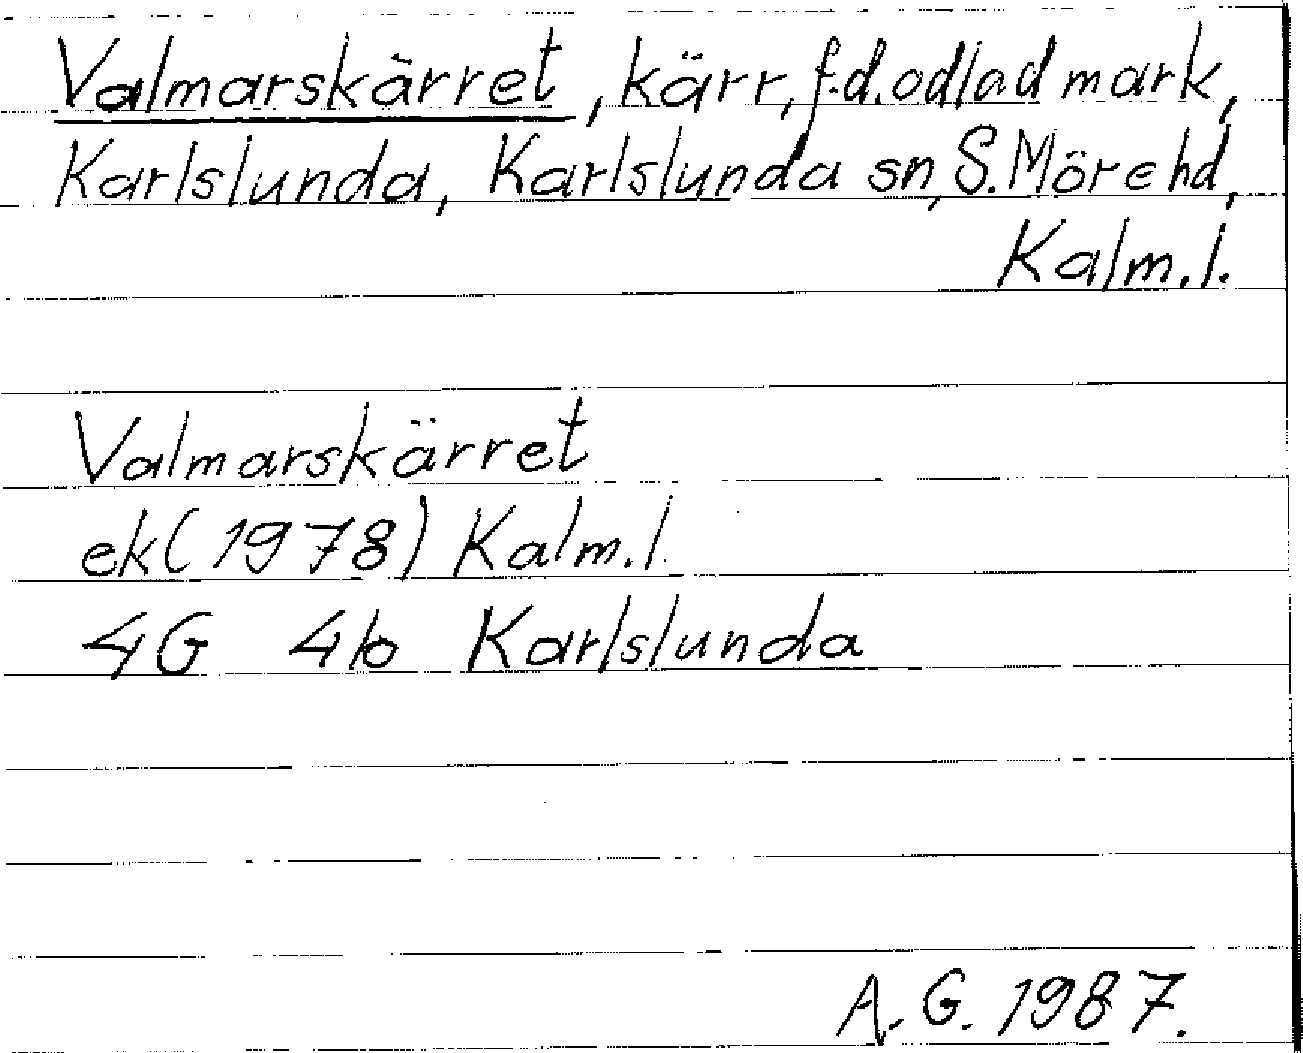 Valmarskärret, kärr, f.d. odlad mark,
Karlslunda, Karlslunda sn, S. Möre hd,
Kalm. l.
Valmarskärret
ek (1978) Kalm. l.
4G 4b Karlslunda
A. G. 1987.